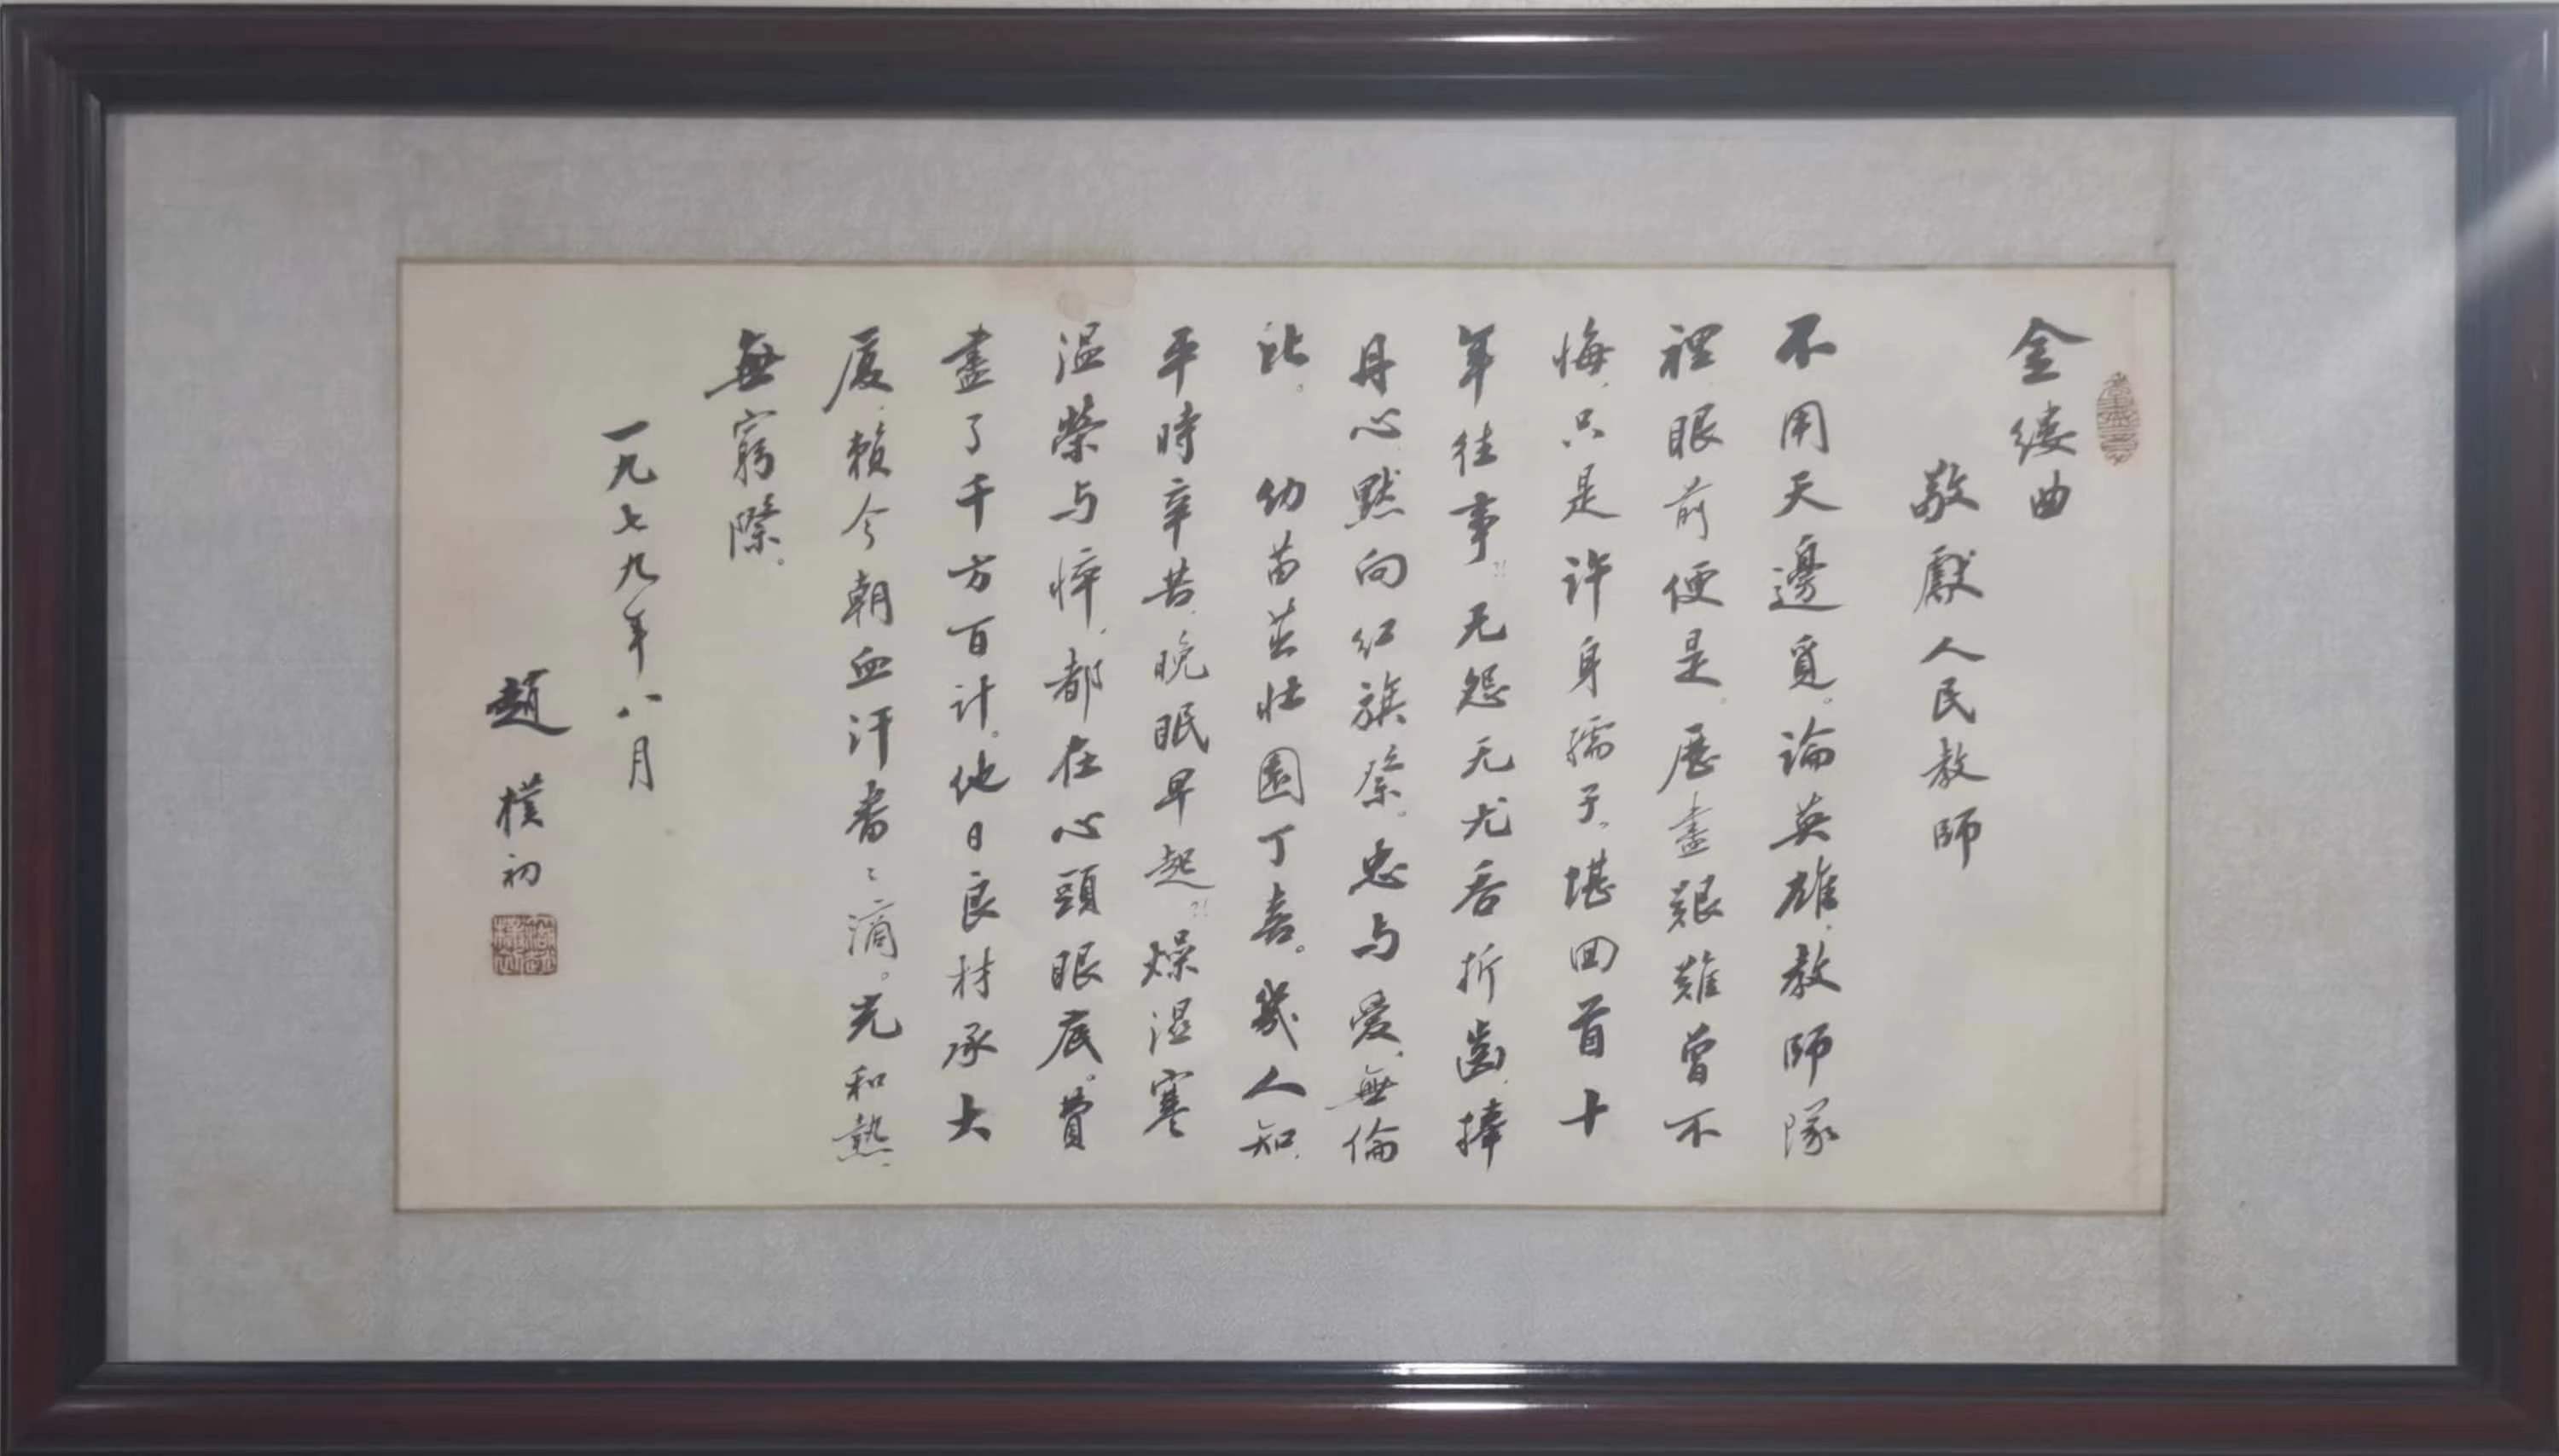 金缕曲
敬獻人民教師
不用天邊覓。論英雄，教師隊
裡，眼前便是。歷盡艱難曾不
悔，只是許身孺子。堪回首十
年往事。无怨无尤吞折齒，捧
丹心，默向红旗祭。忠与爱，無倫
比。 幼苗茁壯園丁喜。幾人知，
平時辛苦，晚眠早起。燥湿寒
温榮与悴，都在心頭眼底。費
盡了千方百计。他日良材承大
厦，賴今朝血汗番〻滴。光和熱，
無窮際。
一九七九年八月
趙樸初